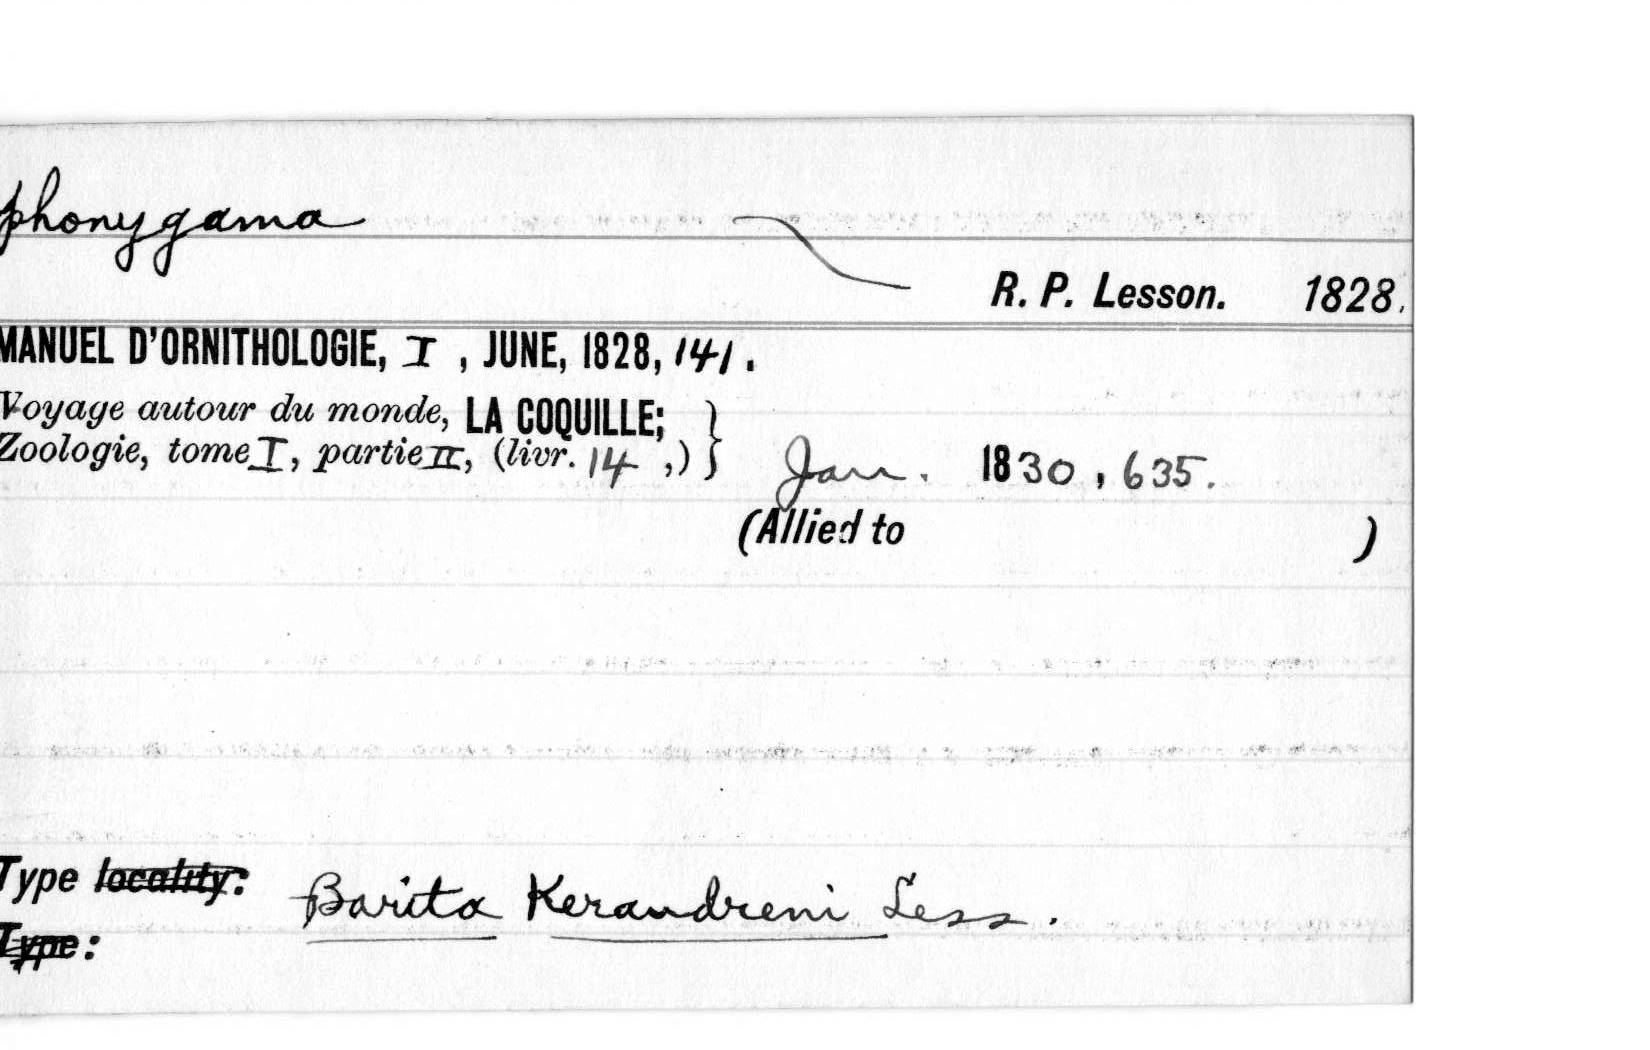 phonygama
R. P. Lesson. 1828.
MANUEL D'ORNITHOLOGIE, I , JUNE, 1828, 141.
Voyage autour du monde, LA COQUILLE;
Zoologie, tome I, partie II, (livr. 14 ,) } Jan. 1830, 635.
(Allied to )
Type locality: Barita Keraudreni Less.
Type: